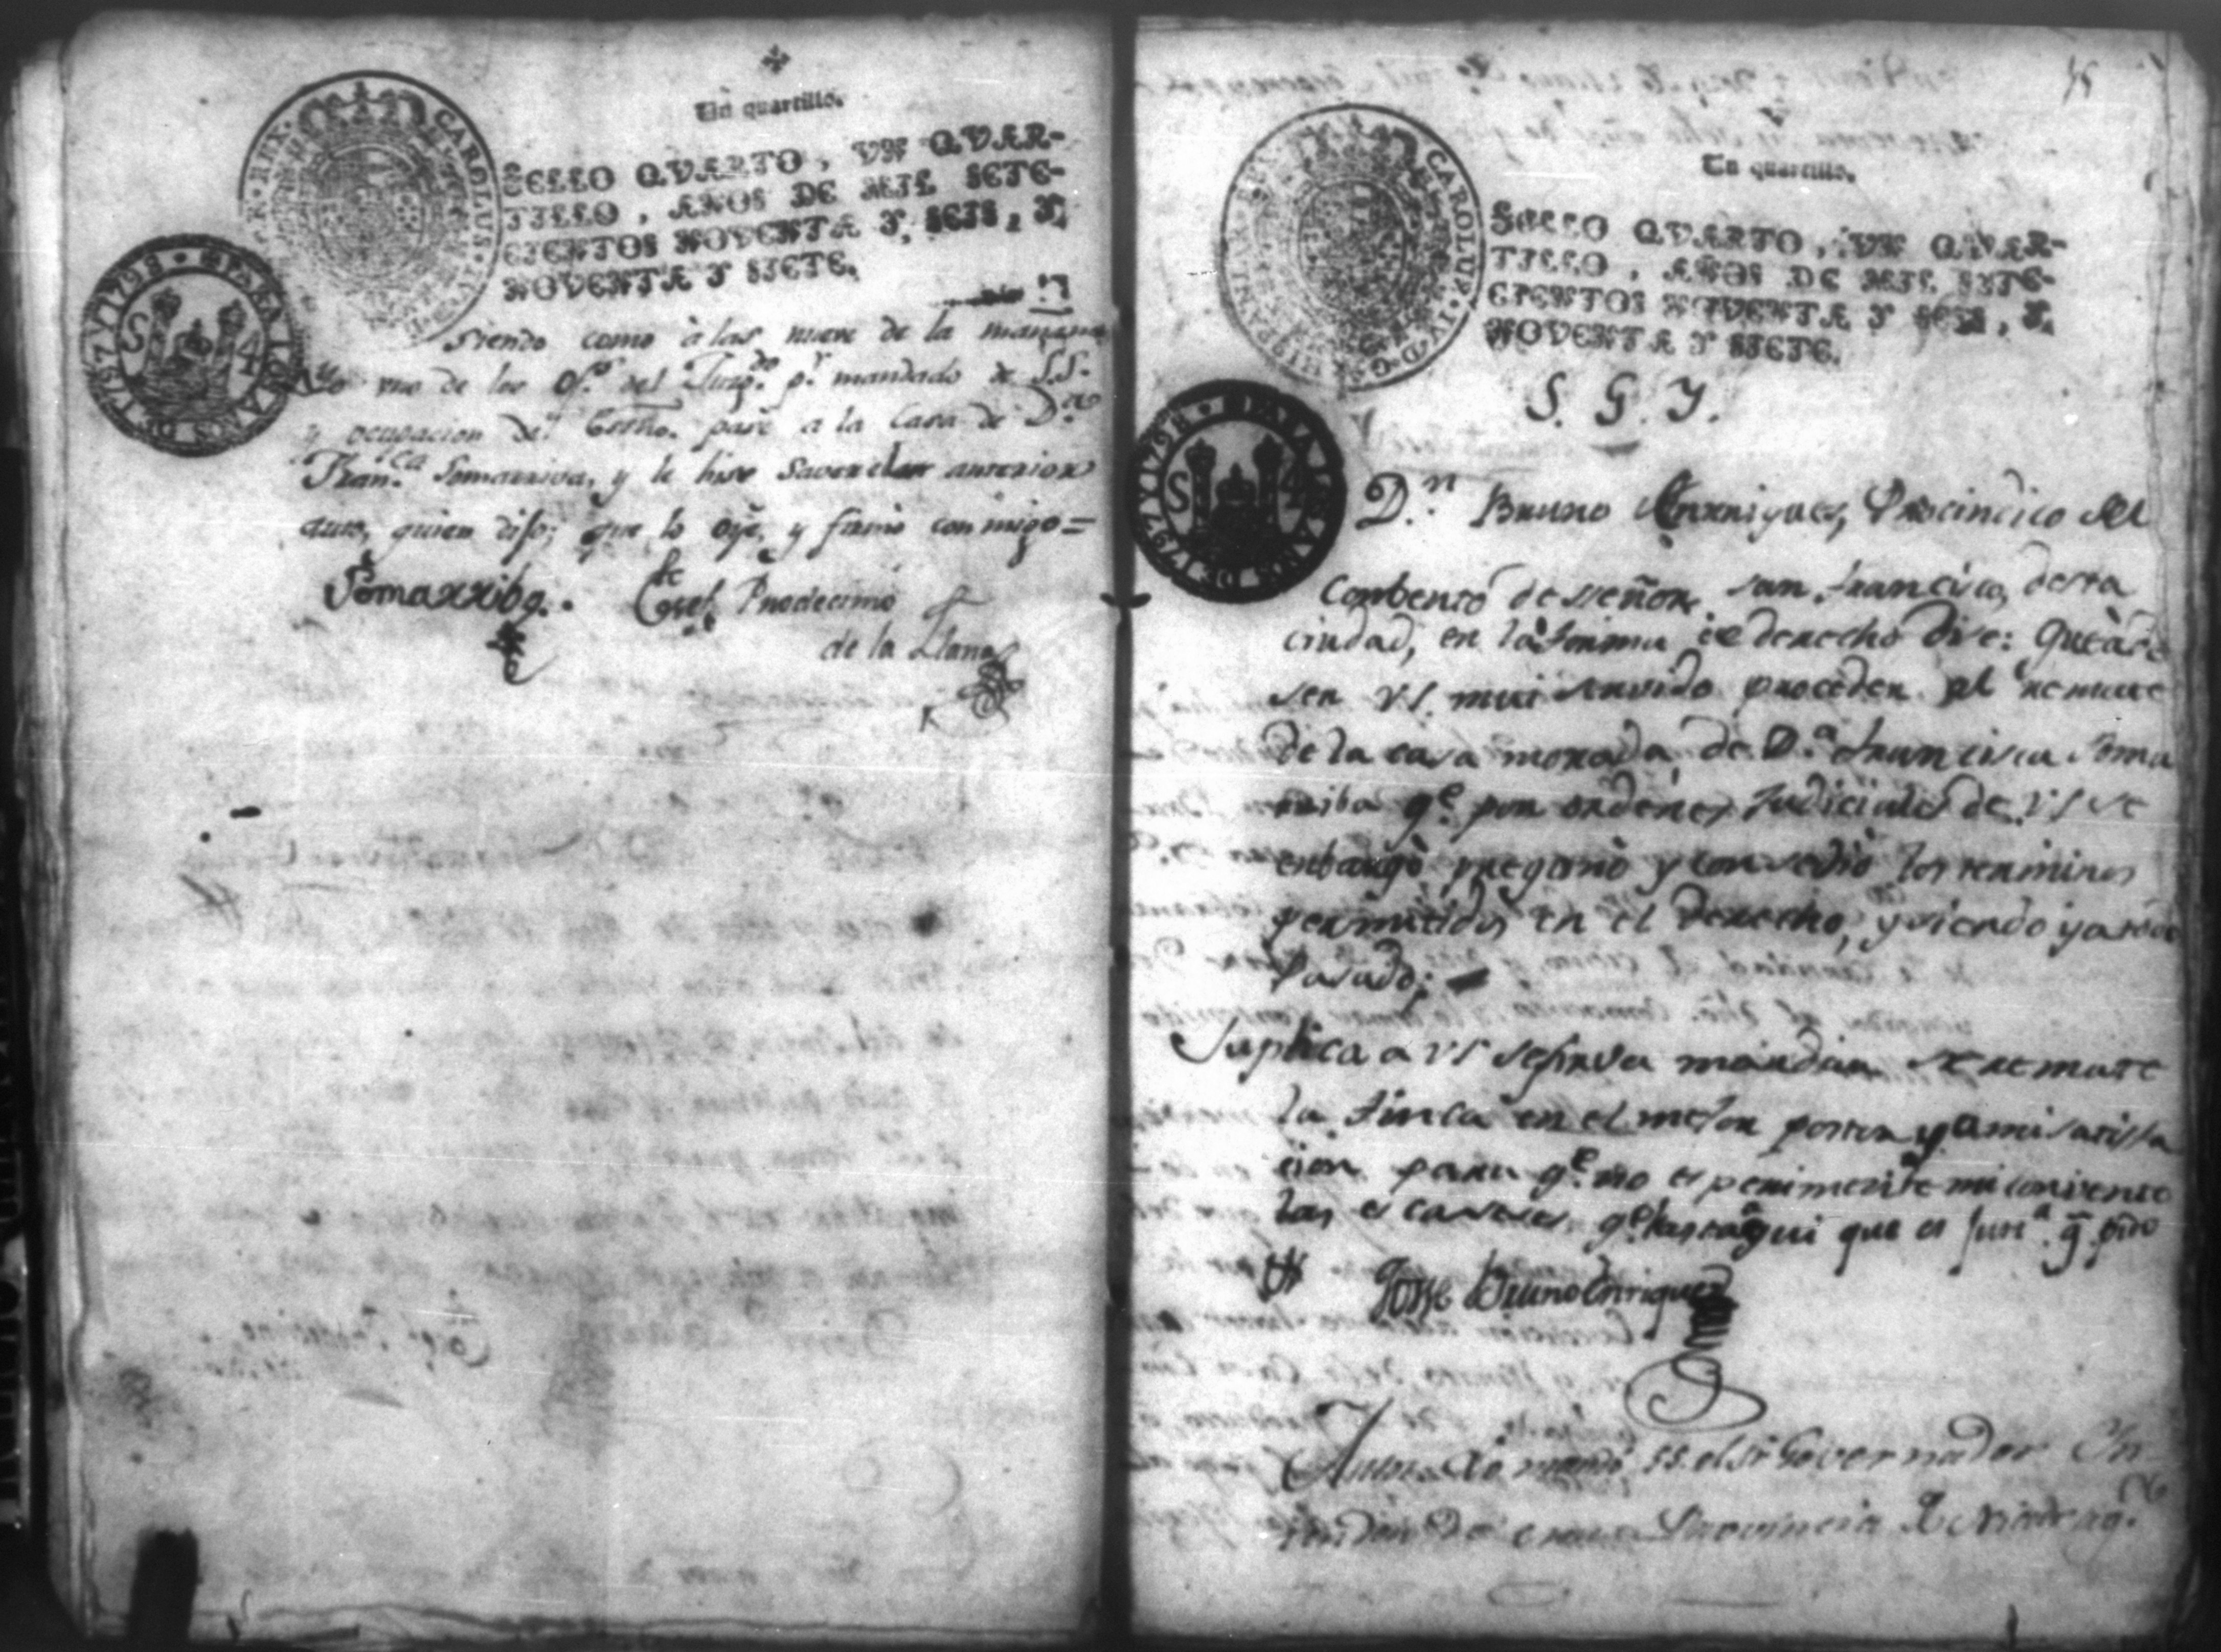 Un quartillo.
SELLO QVARTO, VN QVAR-
TILLO, AÑOS DE MIL SETE-
CIENTOS NOVENTA Y SEIS, Y
NOVENTA Y SIETE.
CAROLUS
PARA LOS AÑOS DE 1797 Y 1798
S 4
siendo como à las nueve de la mañana
Yo uno de los of.s del Juzg.do p.r mandado de S.S.
y ocupacion del Essno. pasè a la Casa de D.a
Fran.ca Somarriva, y le hise saver el anterior
auto, quien dijo; que lo oye, y firmò conmigo=
Somarriba.
Josef Prodecimo
de la Llana
Un quartillo.
SELLO QVARTO, VN QVAR-
TILLO, AÑOS DE MIL SETE-
CIENTOS NOVENTA Y SEIS, Y
NOVENTA Y SIETE.
CAROLUS IV D G HISPANIAR
PARA LOS AÑOS DE 1797 Y 1798
S 4
S. G. Y.
D.n Bruno Enrriques, Procindico del
Conbento de señor san francisco, desta
ciudad, en la forma de derecho dise: Que à de
ser VS. mui servido proceder al remate
de la casa morada de D.a francisca Soma
rriba q.e por ordenes Judiciales de VS se
enbargò pregonò y consediò los terminos
permitidos en el derecho, y siendo ya
pasado;
Suplica a VS se sirva mandar se remate
la finca en el mejor postor y a mi satisfa
cion para q.e no esperimente mi convento
las escaseses q.e hasta aqui que es Just.a q. pido
Jose Bruno Enriques
mandò SS. el Sr Governador In
tendente Provincia de Nicarag.